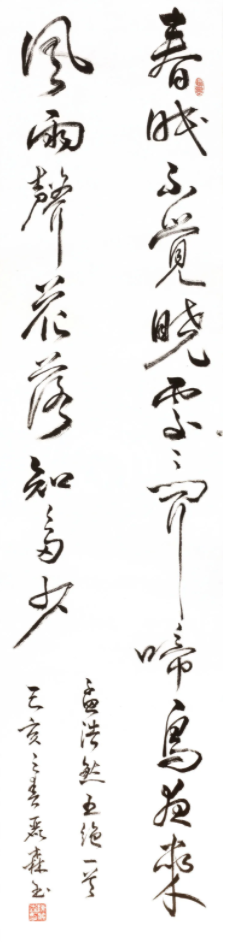 春眠不覺曉處〻聞啼鳥夜來
風雨聲花落知多少
孟浩然五絕一首
己亥之春森书